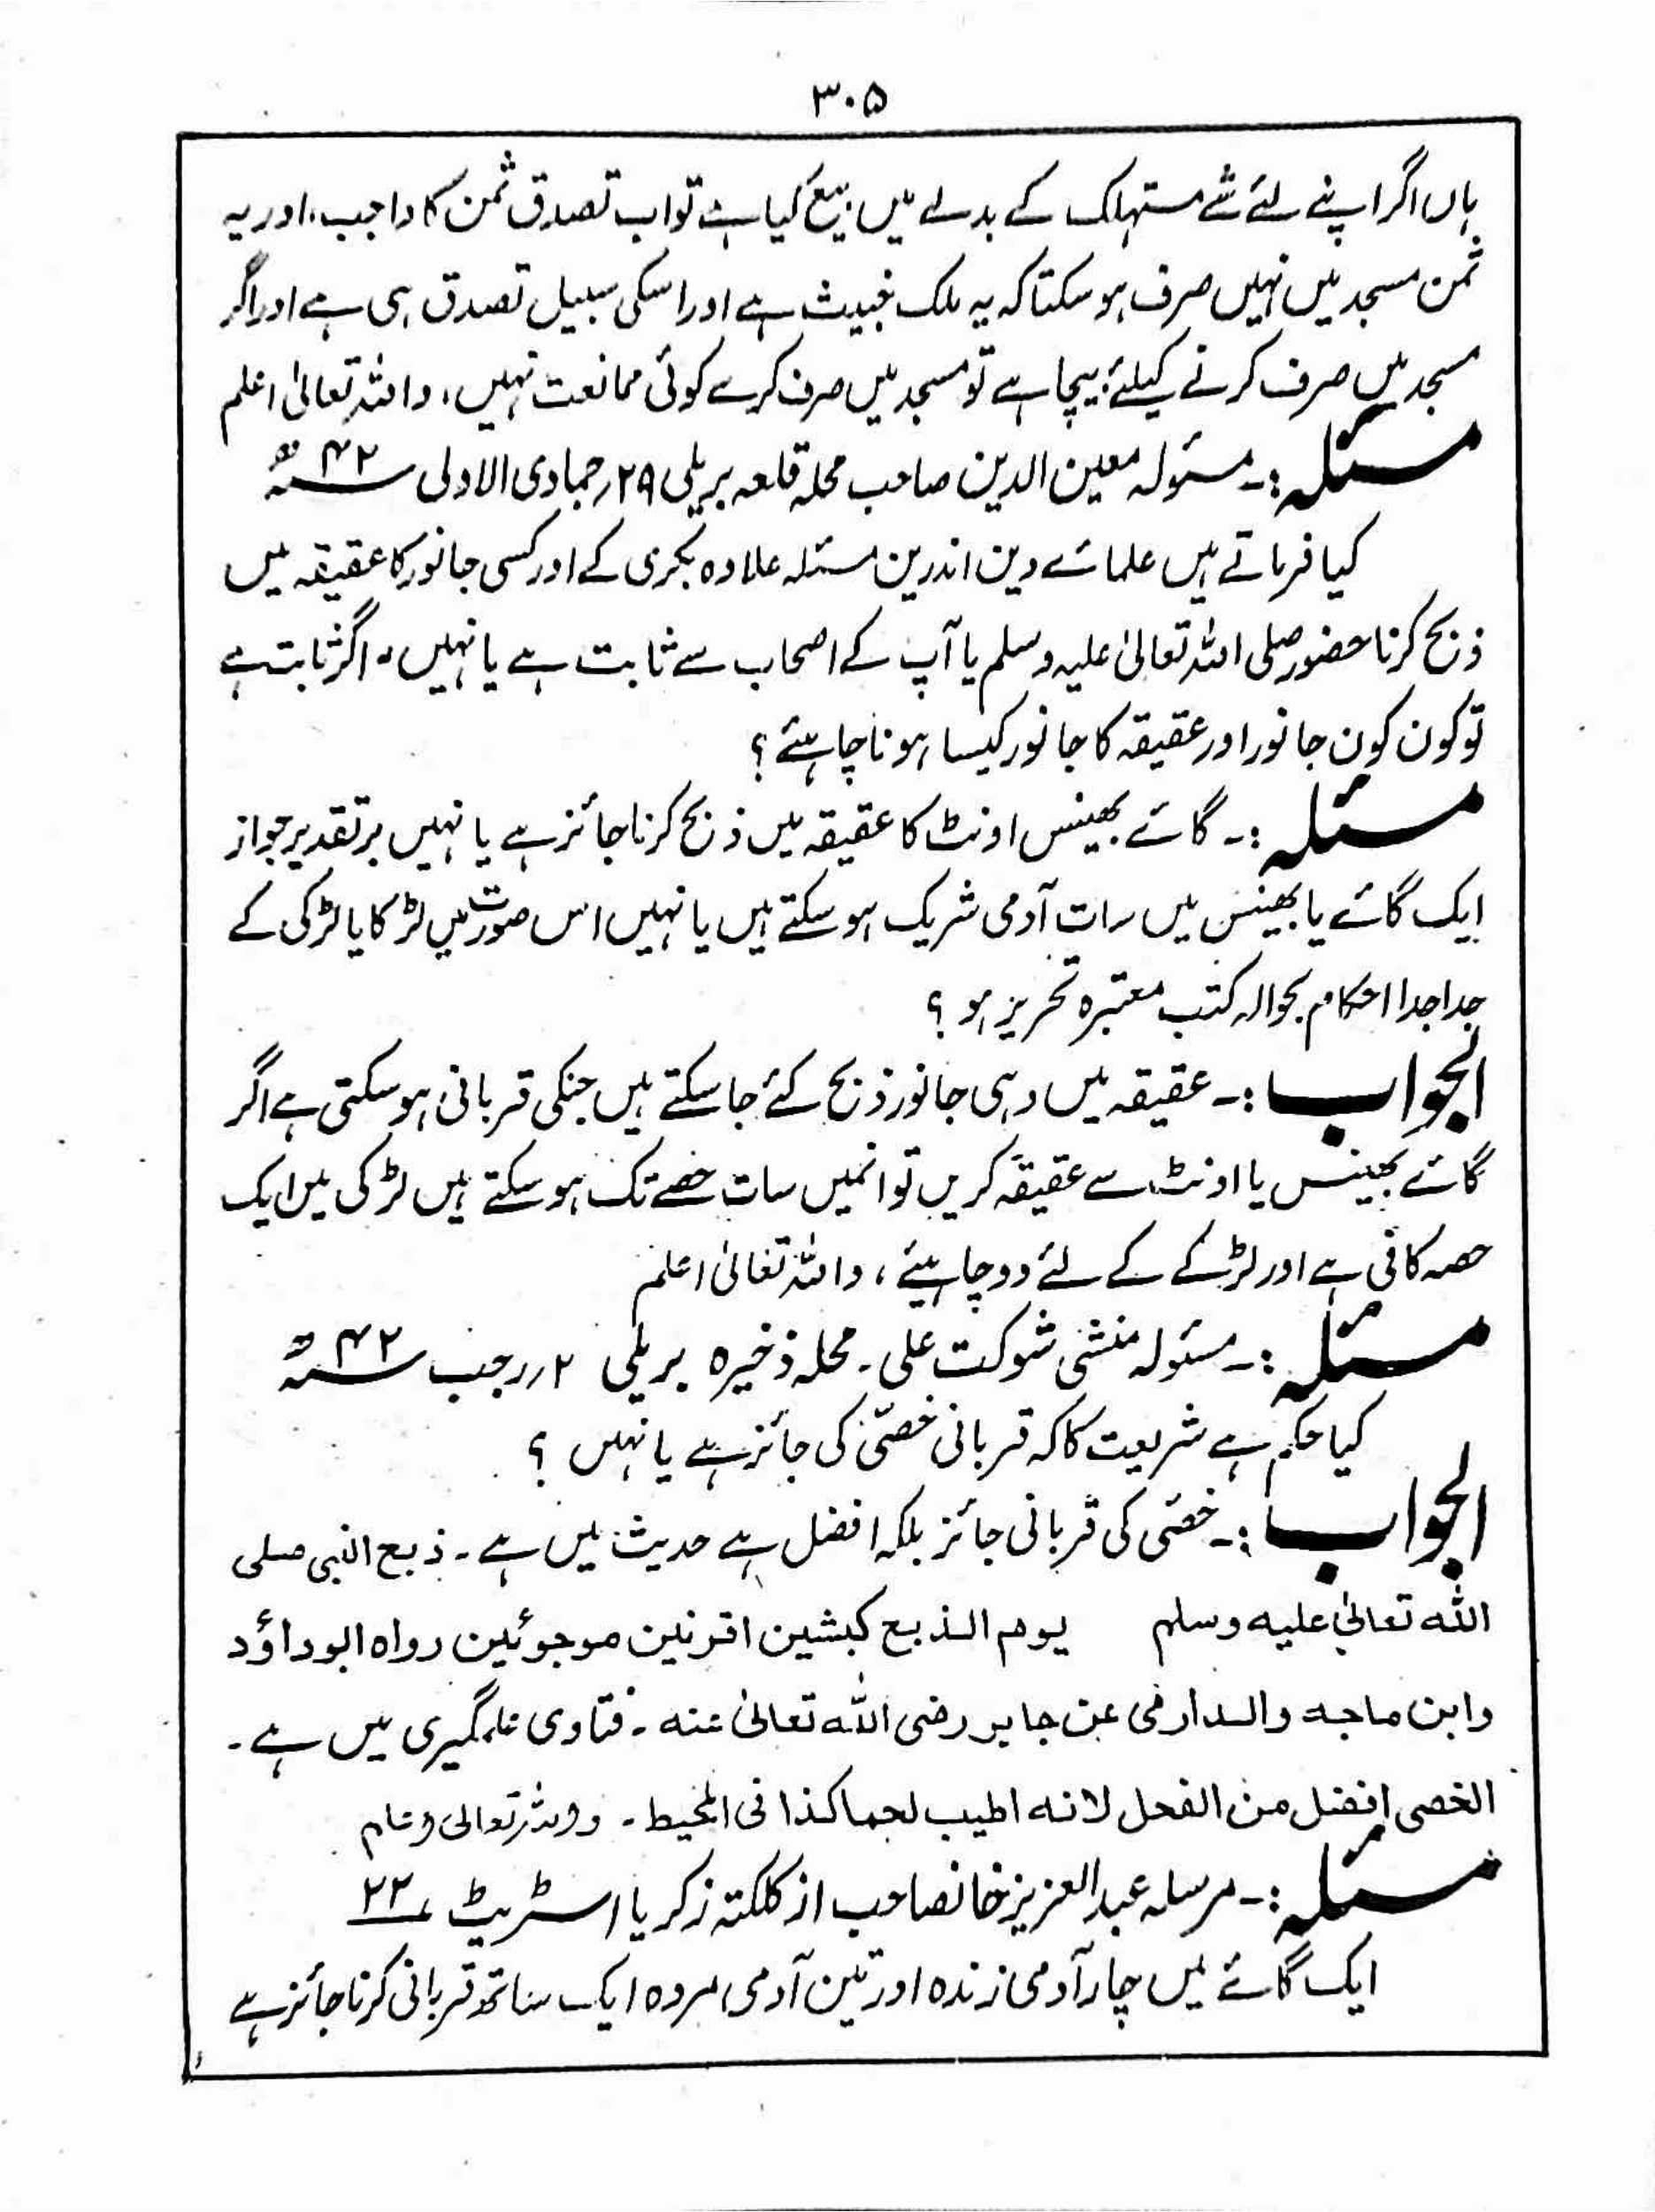 ۳۰۵
ہاں اگر اپنے لئے شے مستہلک کے بدلے میں بیع کیا ہے تو اب تصدق ثمن کا واجب، اور یہ
ثمن مسجد میں نہیں صرف ہو سکتا کہ یہ ملک خبیث ہے اور اسکی سبیل تصدق ہی ہے اور اگر
مسجد میں صرف کرنے کیلئے بیچا ہے تو مسجد میں صرف کرے کوئی ممانعت نہیں، واللہ تعالیٰ اعلم
مسئلہ :۔ مسئولہ معین الدین صاحب محلہ قلعہ بریلی ۲۹؍جمادی الاولی ۴۲ھ
کیا فرماتے ہیں علمائے دین اندرین مسئلہ علاوہ بکری کے اور کسی جانور کا عقیقہ میں
ذبح کرنا حضور صلی اللہ تعالیٰ علیہ وسلم یا آپ کے اصحاب سے ثابت ہے یا نہیں، اگر ثابت ہے
تو کون کون جانور اور عقیقہ کا جانور کیسا ہونا چاہئے؟
مسئلہ :۔ گائے بھینس اونٹ کا عقیقہ میں ذبح کرنا جائز ہے یا نہیں بر تقدیر جواز
ایک گائے یا بھینس میں سات آدمی شریک ہو سکتے ہیں یا نہیں اس صورت میں لڑکا یا لڑکی کے
جدا جدا احکام بحوالہ کتب معتبرہ تحریر ہو؟
الجواب :۔ عقیقہ میں وہی جانور ذبح کئے جا سکتے ہیں جنکی قربانی ہو سکتی ہے اگر
گائے بھینس یا اونٹ سے عقیقہ کریں تو انمیں سات حصے تک ہو سکتے ہیں لڑکی میں ایک
حصہ کافی ہے اور لڑکے کے لئے دو چاہیئے، واللہ تعالیٰ اعلم
مسئلہ :۔ مسئولہ منشی شوکت علی۔ محلہ ذخیرہ بریلی ۲؍رجب ۴۲ھ
کیا حکم ہے شریعت کا کہ قربانی خصّی کی جائز ہے یا نہیں؟
الجواب :۔ خصّی کی قربانی جائز بلکہ افضل ہے حدیث میں ہے۔ ذبح النبی صلی
اللہ تعالیٰ علیہ وسلم یوم الذبح کبشین اقرنین موجوئین رواہ ابوداؤد
وابن ماجہ والدارمی عن جابر رضی اللہ تعالیٰ عنہ۔ فتاوی علمگیری میں ہے۔
الخصی افضل من الفحل لانہ اطیب لحما کذا فی المحیط۔ واللہ تعالیٰ اعلم
مسئلہ :۔ مرسلہ عبدالعزیز خانصاحب از کلکتہ زکریا اسٹریٹ ۲۲
ایک گائے میں چار آدمی زندہ اور تین آدمی مردہ ایک ساتھ قربانی کرنا جائز ہے